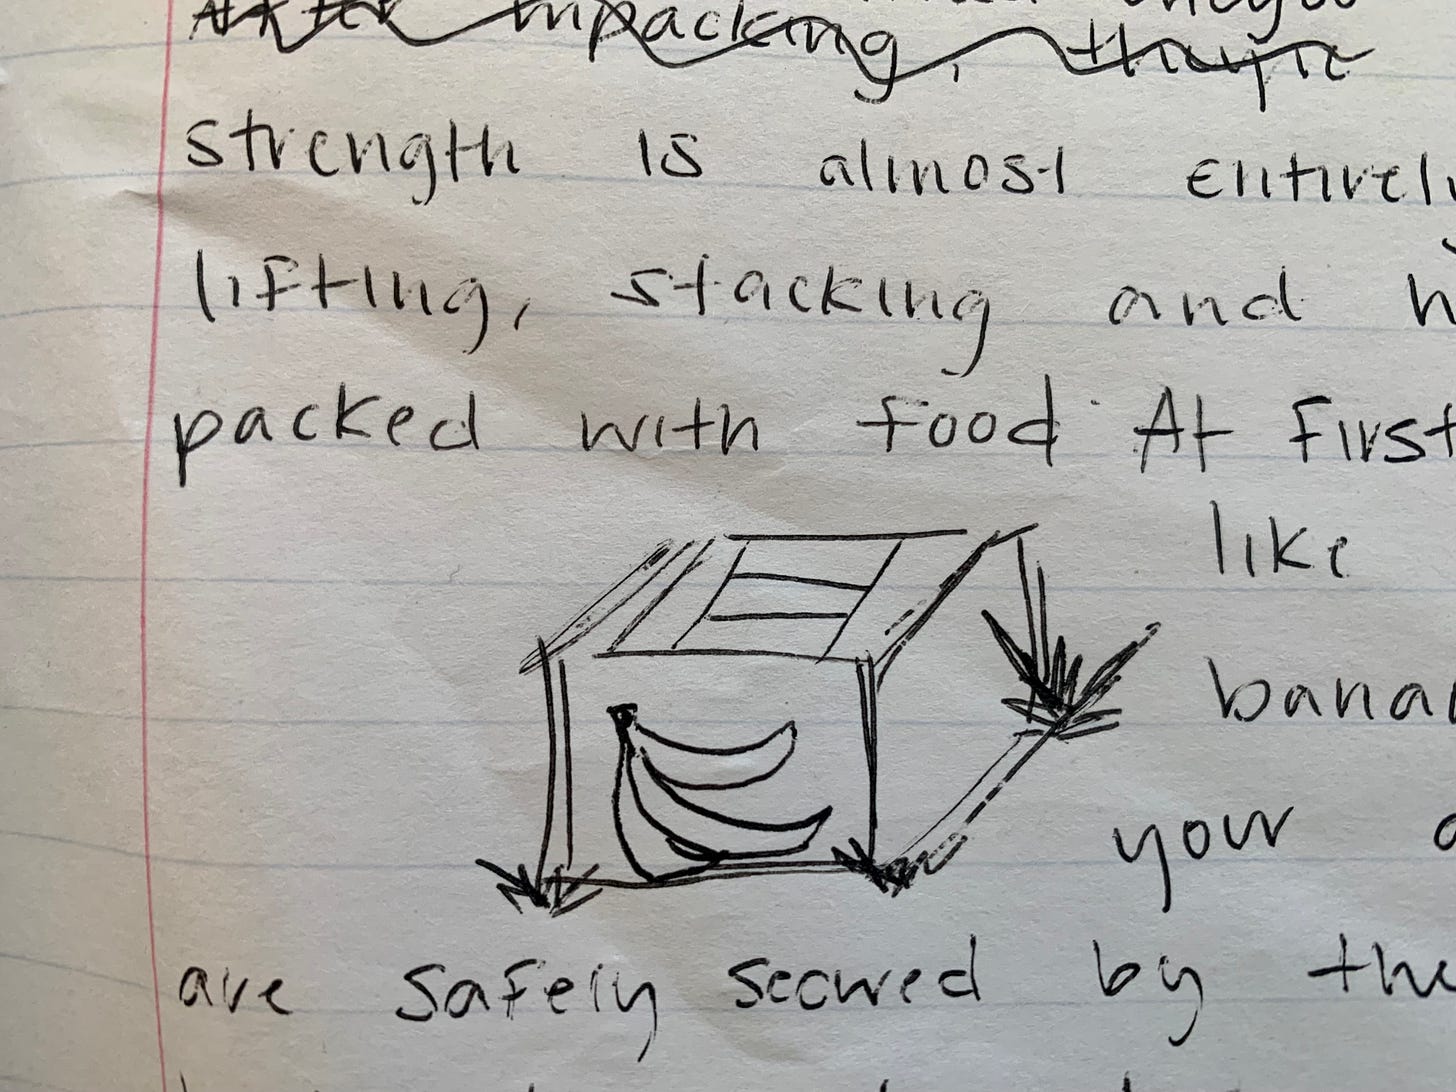 strength is almost
lifting, stacking and
packed with food. At first
like
your
are safely secured by